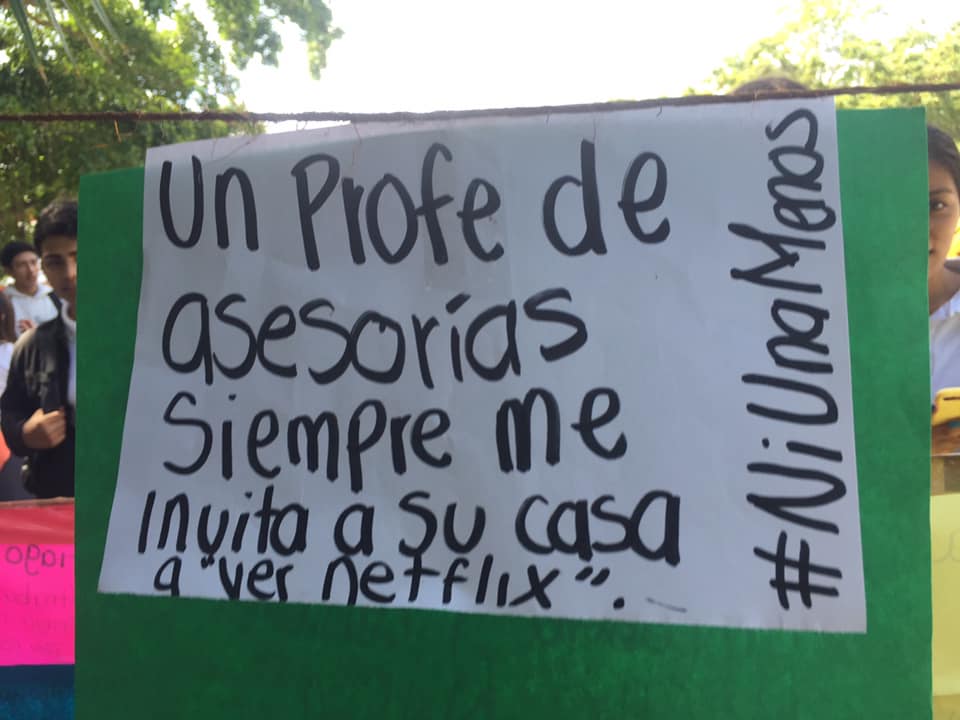 Un Profe de
asesorías
Siempre me
invita a su casa
a "ver netflix".
#NiUnaMenos